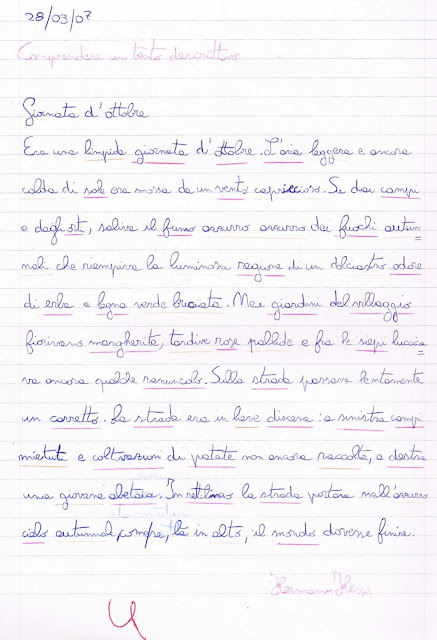 28/03/07
Comprendere un testo descrittivo
Giornata d'ottobre
Era una limpida giornata d'ottobre. L'aria leggera e ancora
calda di sole era mossa da un vento capriccioso. Se dai campi
e dagli orti, saliva il fumo azzurro azzurro dei fuochi autun=
nali che riempiva la luminosa regione di un dolciastro odore
di erba e legna verde bruciata. Nei giardini del villaggio
fiorivano margherite, tardive rose pallide e fra le siepi luccica=
va ancora qualche ranuncolo. Sulla strada passava lentamente
un carretto. La strada era in lieve discesa: a sinistra campi
mietuti e coltivazioni di patate non ancora raccolte, a destra
una giovane abetaia. In rettilineo la strada portava nell'azzurro
cielo autunnale, come, là in alto, il mondo dovesse finire.
Hermann Hesse